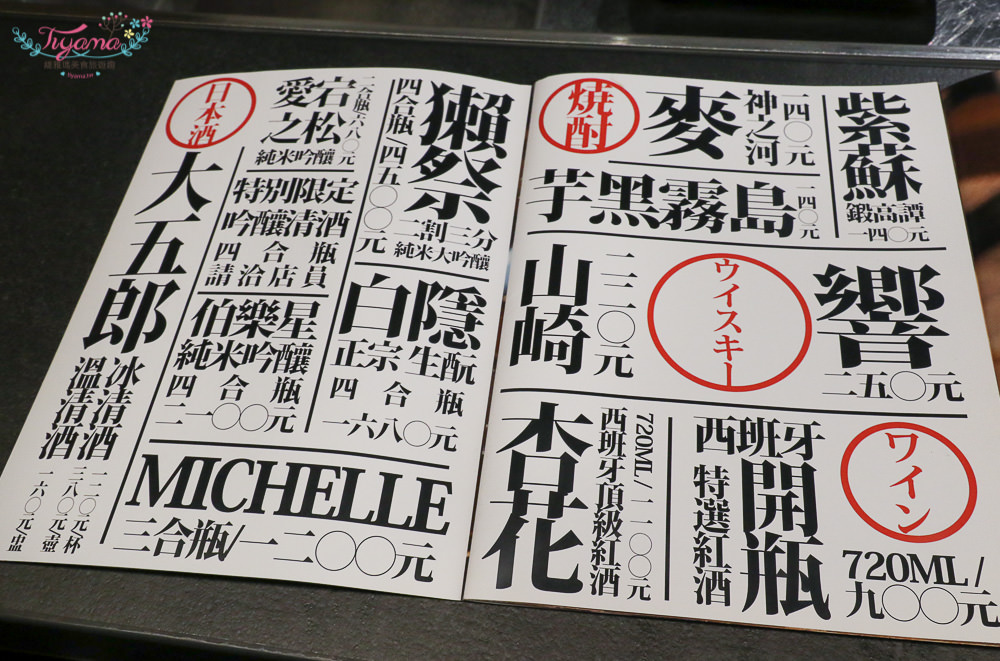 Tiyama
緹雅瑪美食旅遊趣
tiyama.tw
日本酒
大五郎
冰清酒
溫清酒
一二〇元/杯
三八〇元/壺
一六〇元/盅
宕松
愛之
純米吟釀
二合瓶六八〇元
特別限定
吟釀清酒
四合瓶
請洽店員
伯樂星
純米吟釀
四合瓶
二一〇〇元
獺祭
二割三分
純米大吟釀
四合瓶/四五〇〇元
白隱
正宗生酛
四合瓶
一六八〇元
MICHELLE
三合瓶/一二〇〇元
焼酎
麥
神之河
一四〇元
紫蘇
鍛高譚
一四〇元
芋黑霧島
一四〇元
ウイスキー
山崎
二二〇元
響
二五〇元
ワイン
杏花
西班牙頂級紅酒
720ML/一一〇〇元
西班牙
開瓶
特選紅酒
720ML/
九〇〇元